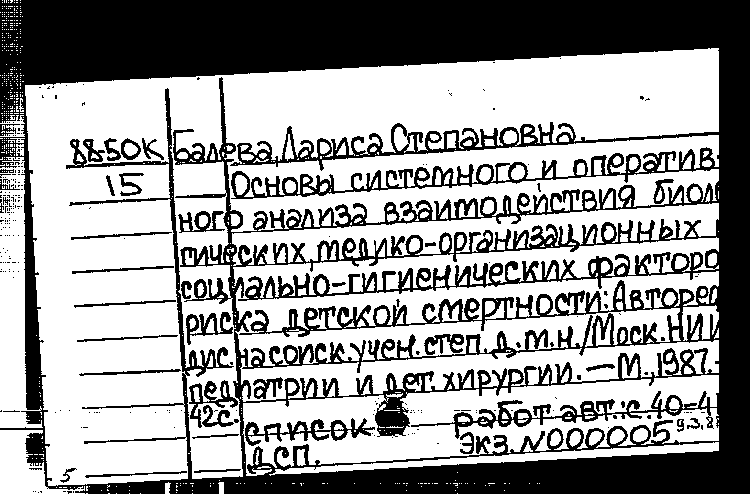 88-50К Балева, Лариса Степановна.
15 Основы системного и оператив-
ного анализа взаимодействия биоло
гических, медико-организационных
социально-гигиенических факторо
риска детской смертности: Авторе
дис. на соиск. учен. степ. д.м.н./Моск. НИИ
педиатрии и дет. хирургии. — М., 1987. -
42с.
список работ авт.: с. 40-4
ДСП. Экз. N000005.
5